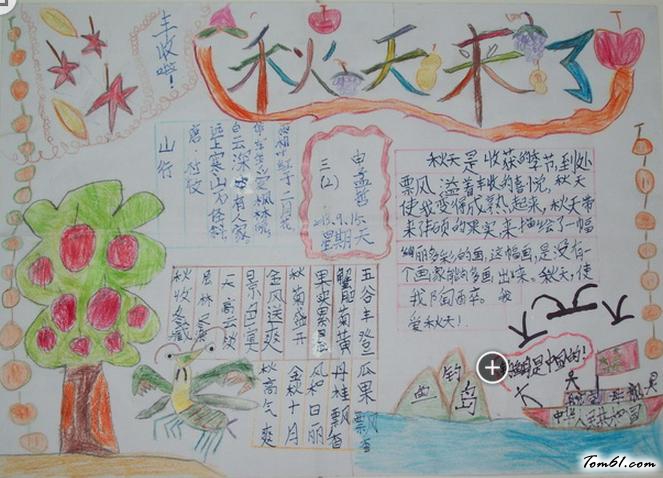 秋天来了
丰收啦！
山行
唐 杜牧
远上寒山石径斜
白云深处有人家
停车坐爱枫林晚
霜叶红于二月花
三(2)
申孟哲
2013.9.15
星期天
秋天是收获的季节,到处
飘风
溢着丰收的喜悦，秋天
使我变得成熟起来，秋天带
来硕硕的果实,来描绘了一幅
丽多彩的画，这幅画,是没有
一个画家能够多画出来。秋天,使
爱秋天！
五谷丰登
瓜果飘香
蟹肥菊黄
丹桂飘香
果实累累
风和日丽
秋菊盛开
金秋十月
金风送爽
秋高气爽
天高云淡
秋收冬藏
钓
岛
是中国的！
中华人民共和国
Tom61.com